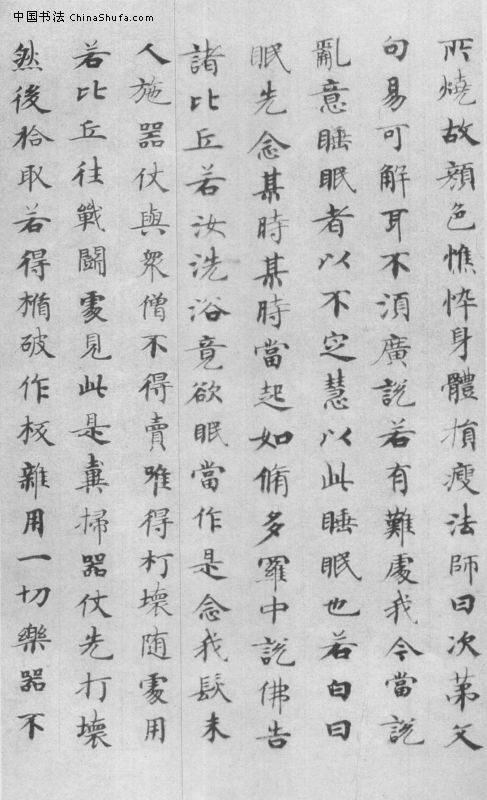 中国书法 ChinaShufa.com
所燒故顔色憔悴身體損瘦法師曰次苐文
句易可解耳不湏廣說若有難處我今當説
亂意睡眠者以不定慧以此睡眠也若白日
眠先念某時某時當起如脩多羅中説佛告
諸比丘若汝洗浴竟欲眠當作是念我髮未
人施器仗與衆僧不得賣唯得打壞随處用
若比丘往戰鬪處見此是糞掃器仗先打壞
然後拾取若得楯破作板雜用一切樂器不